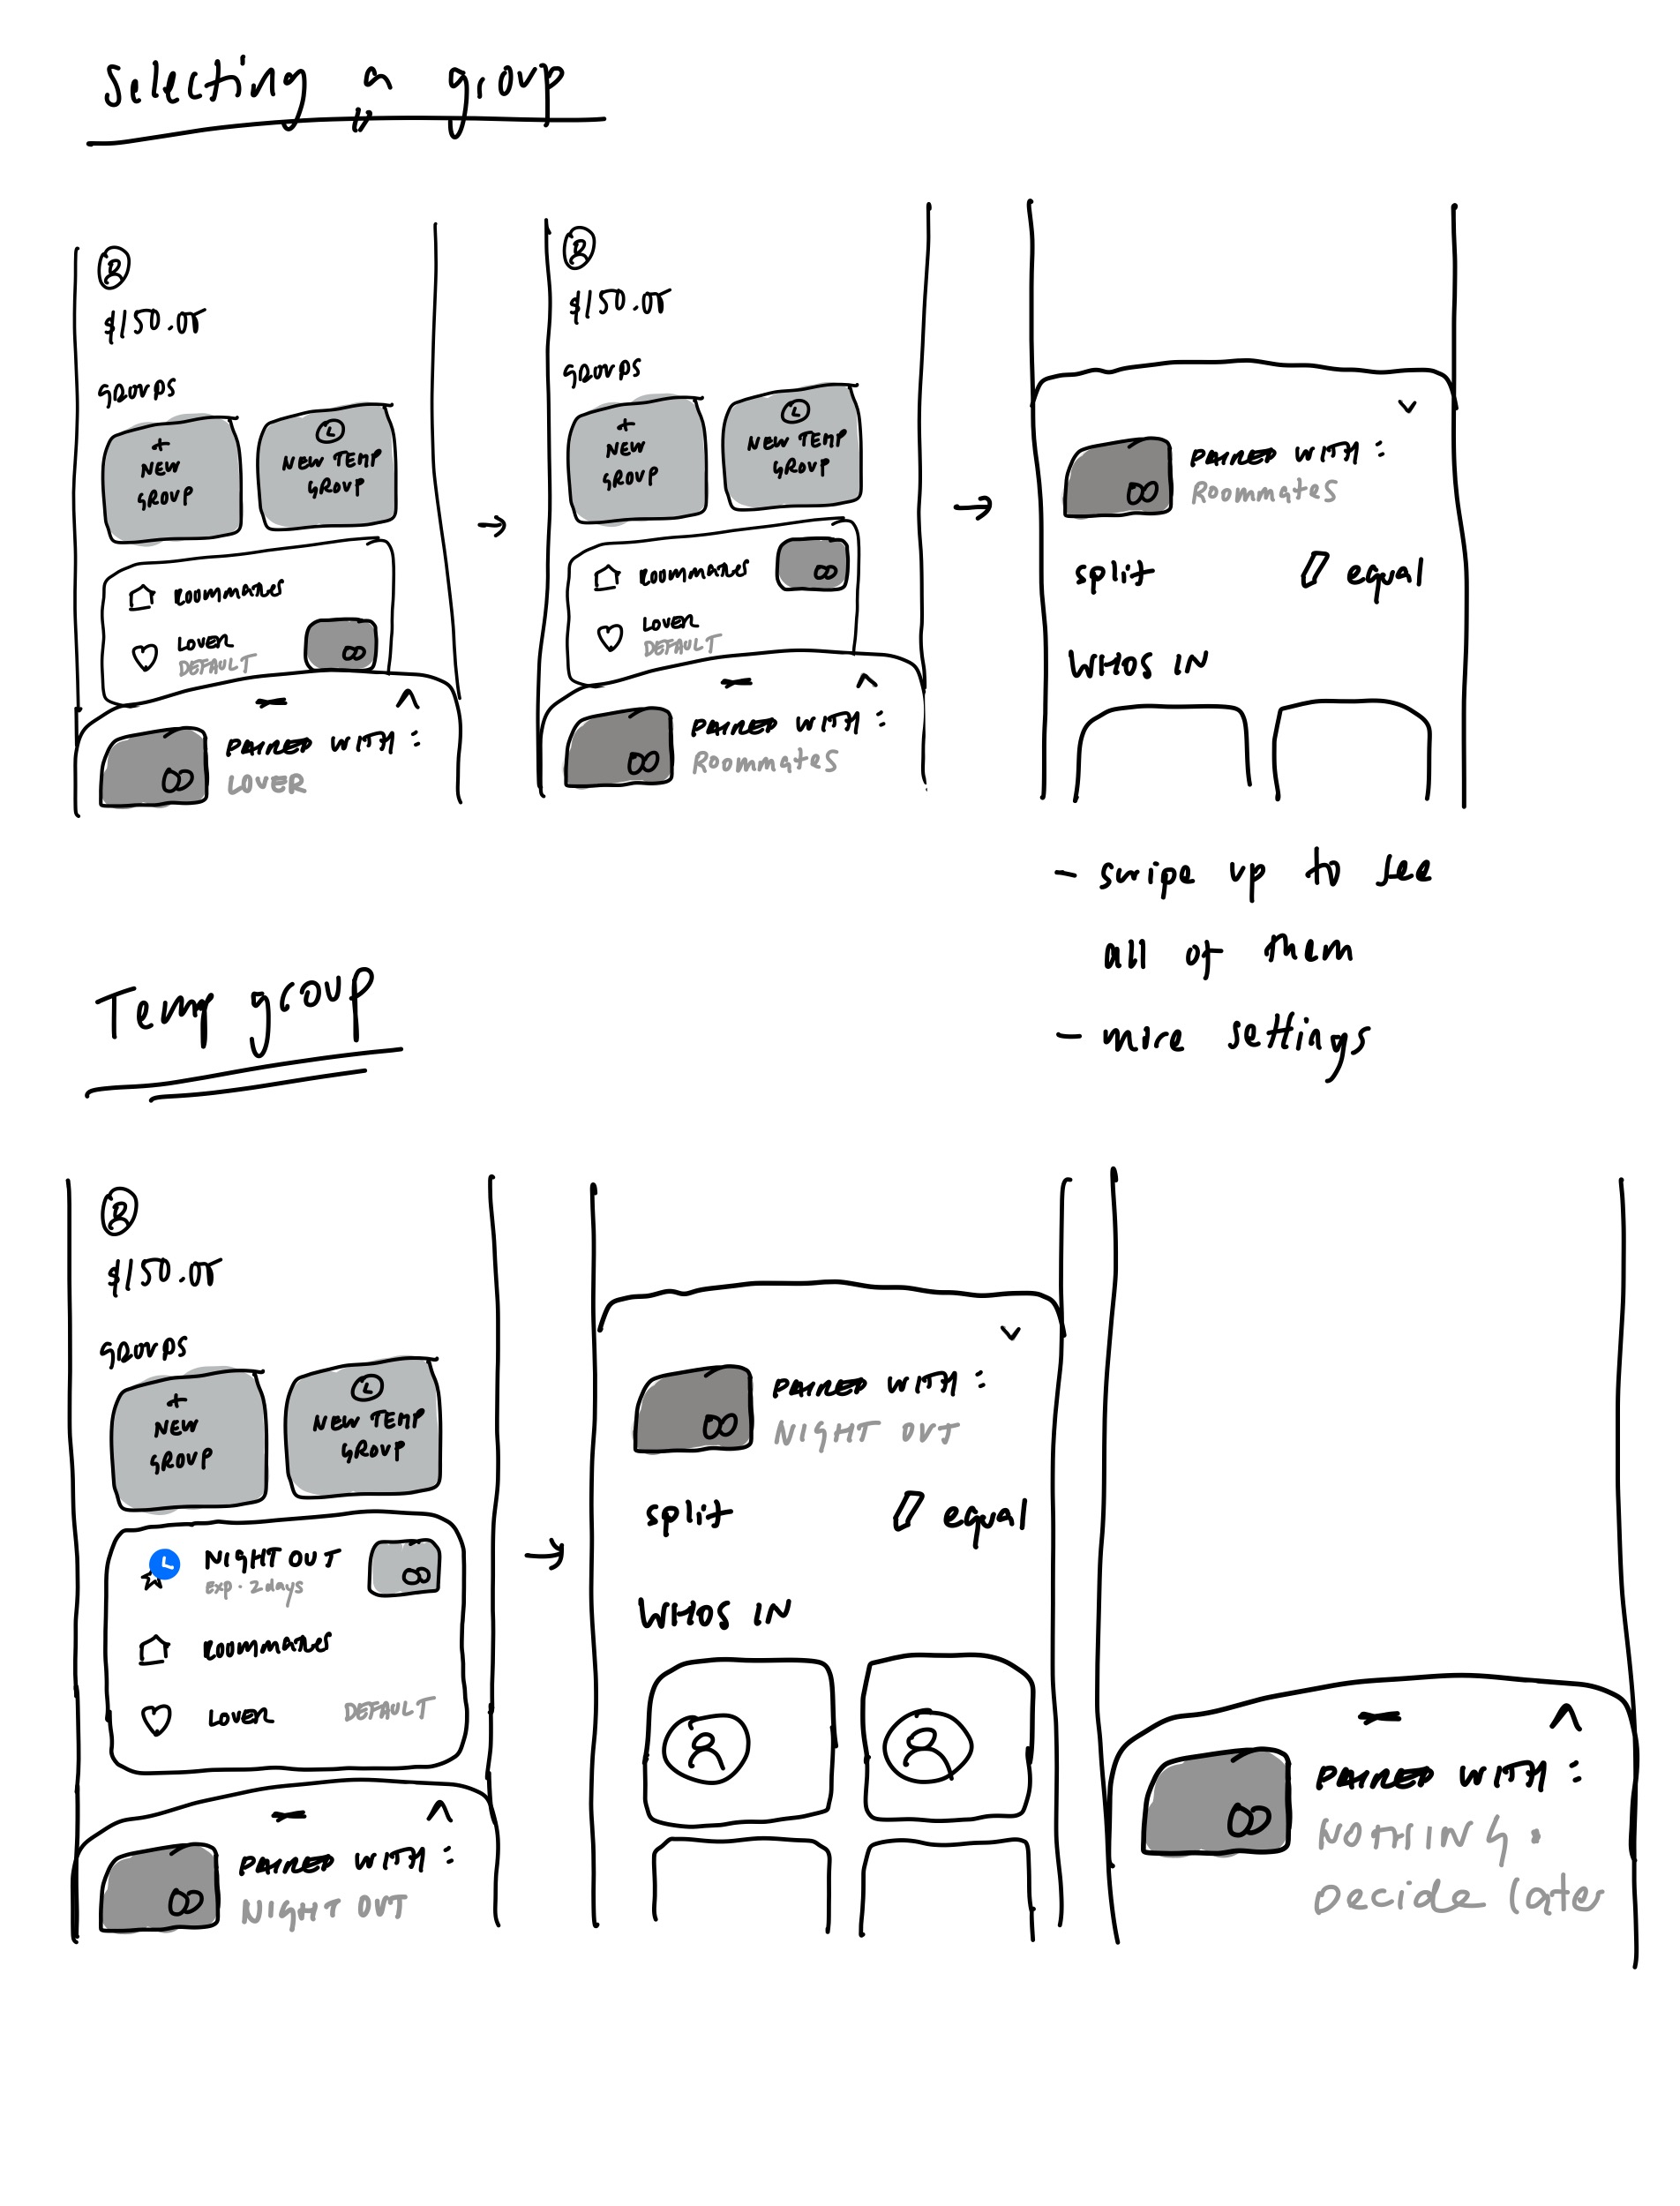 Selecting a group
$150.00
GROUPS
+
NEW
GROUP
NEW TEMP
GROUP
ROOMMATES
LOVER
DEFAULT
PAIRED WITH :
LOVER
$150.00
GROUPS
+
NEW
GROUP
NEW TEMP
GROUP
ROOMMATES
LOVER
DEFAULT
PAIRED WITH :
Roommates
PAIRED WITH :
Roommates
split equal
WHOS IN
- swipe up to see
all of them
- more settings
Temp group
$150.00
GROUPS
+
NEW
GROUP
NEW TEMP
GROUP
NIGHT OUT
Exp · 2 days
ROOMMATES
LOVER DEFAULT
PAIRED WITH :
NIGHT OUT
PAIRED WITH :
NIGHT OUT
split equal
WHOS IN
PAIRED WITH :
NOTHING .
Decide later